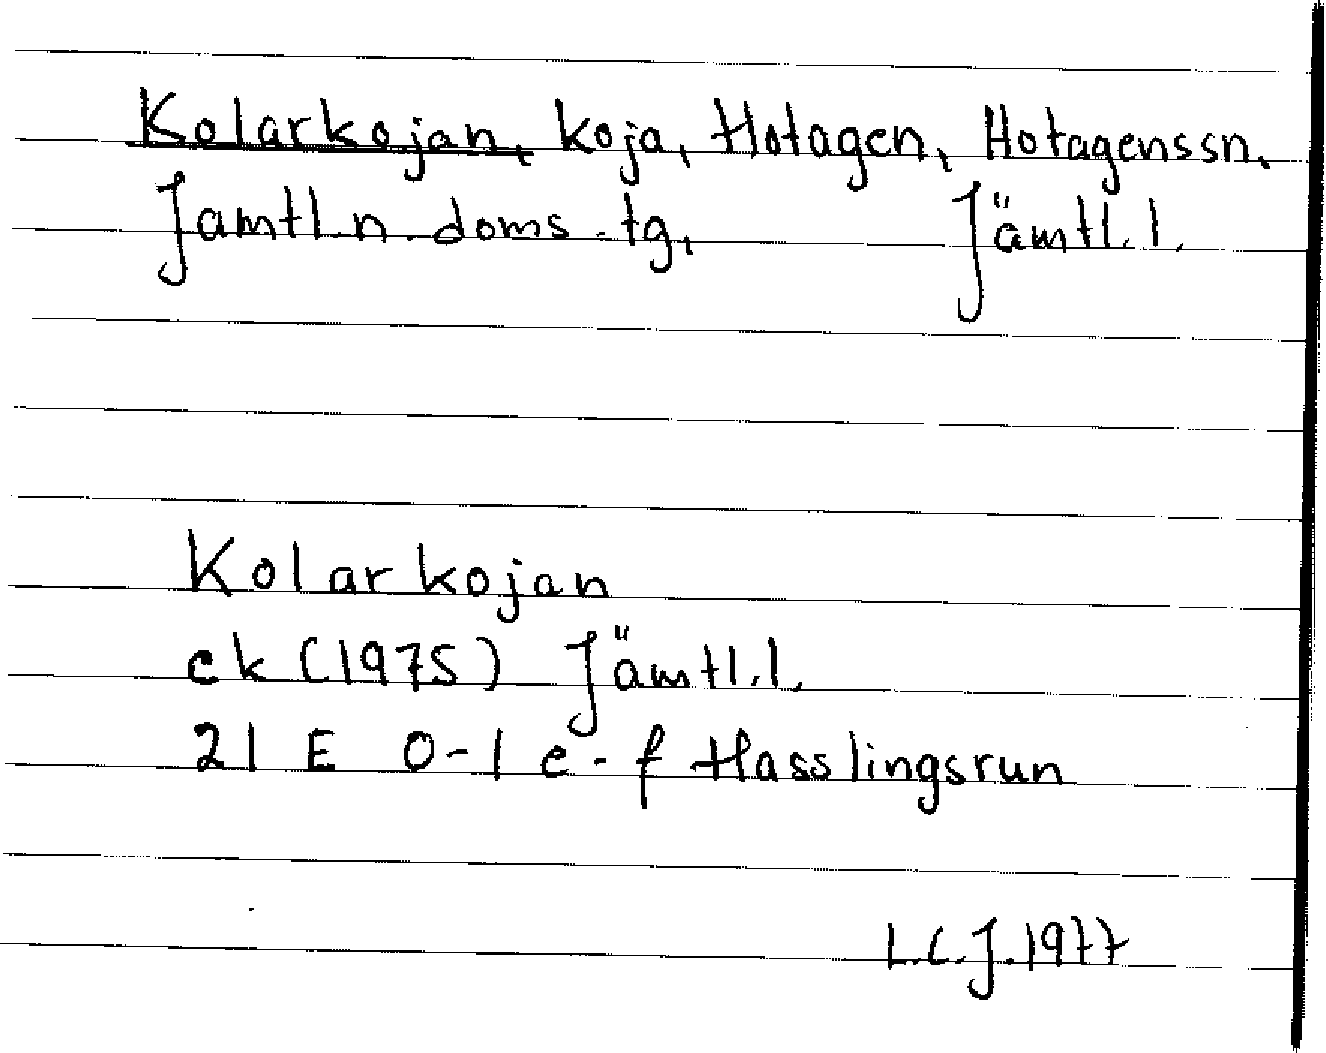 Kolarkojan, koja, Hotagen, Hotagenssn,
Jamtl.n.doms.tg, Jämtl.l.
Kolarkojan
ek (1975) Jämtl.l.
21 E 0-1 e-f Hasslingsrun
L.C.J.1977